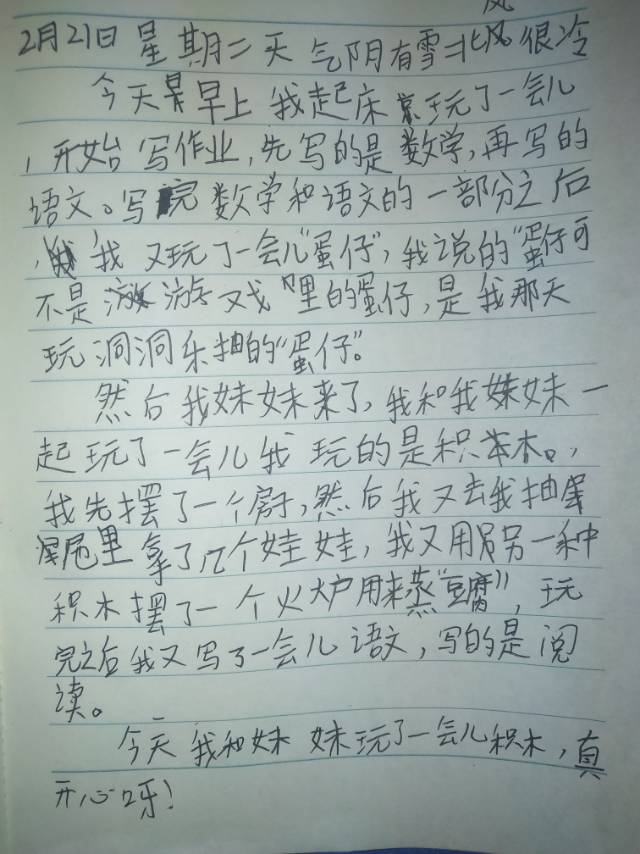 2月21日 星期二 天气阴有雪北风 很冷
今天早上 我起床玩了一会儿
，开始写作业，先写的是数学，再写的
语文。写完数学和语文的一部分之后
，我又玩了一会儿“蛋仔”，我说的“蛋仔可
不是游戏“里的蛋仔，是我那天
玩洞洞乐抽的“蛋仔”。
然后我妹妹来了，我和我妹妹一
起玩了一会儿我玩的是积木。，
我先摆了一个厨，然后我又去我抽
屉里拿了几个娃娃，我又用另一种
积木摆了一个火炉用来蒸“豆腐”，玩
完之后我又写了一会儿语文，写的是阅
读。
今天我和妹妹玩了一会儿积木，真
开心呀！